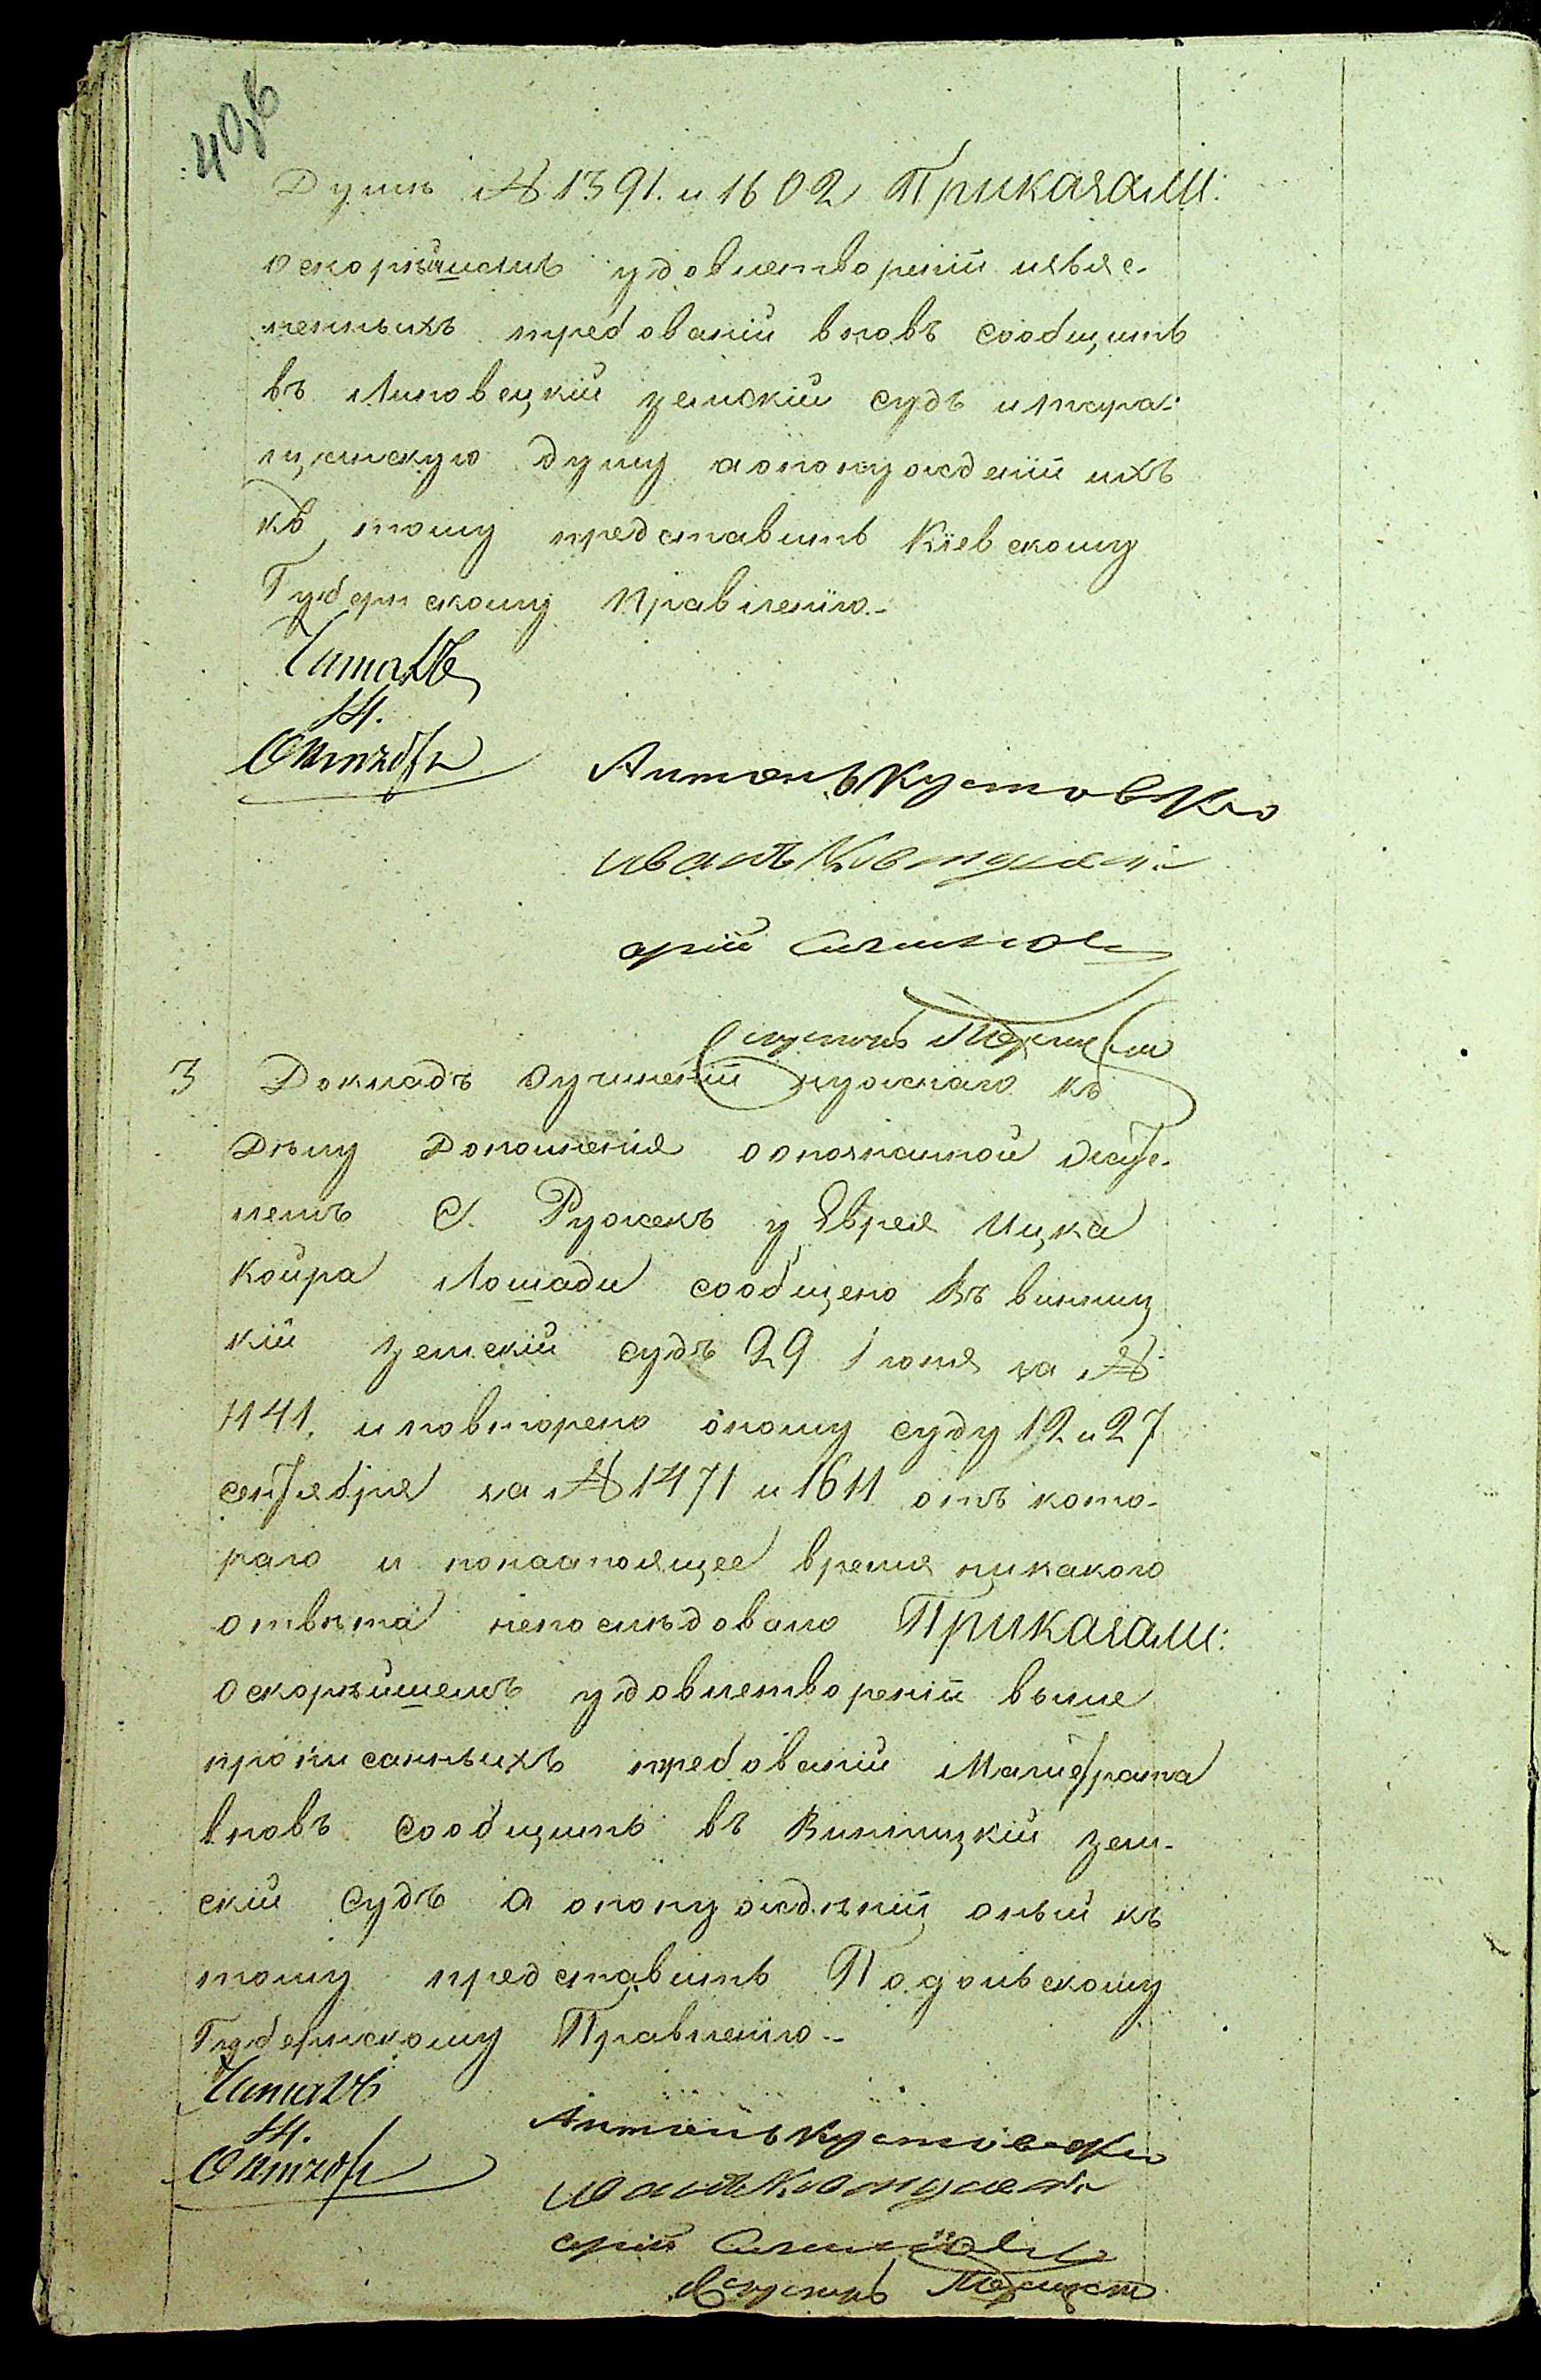 Думѣ № 1391. и 1602 Приказали:
оскорѣйшемъ удовлетвореніи изъяс-
ненныхъ требованій вновь сообщить
въ Липовецкій земскій судъ и тара-
щанскую думу аопонужденіи ихъ
къ тому представить Кіевскому
Губернскому Правленію.
Читалъ
Антонъ Кустовско
иванъ
3 Докладъ Оучиненіи нужнаго къ
Дѣлу Дополненія оопознанной
С. Ружекъ у Еврея Ицка
Койра Лошади сообщено въ винниц
кій земскій судъ 29 Іюня за №
1141. и повторено оному суду 12 и 27
сентября за № 1471 и 1611 отъ кото-
раго и понастоящее время никакого
отвѣта непослѣдовало Приказали:
оскорѣйшемъ удовлетвореніи выше
прописанныхъ требованій Магистрата
вновь сообщить въ Винницкій зем-
скій Судъ а опонужденіи оный къ
тому представить Подольскому
Губернскому Правленію
Читалъ
Антонъ Кустовско
иванъ